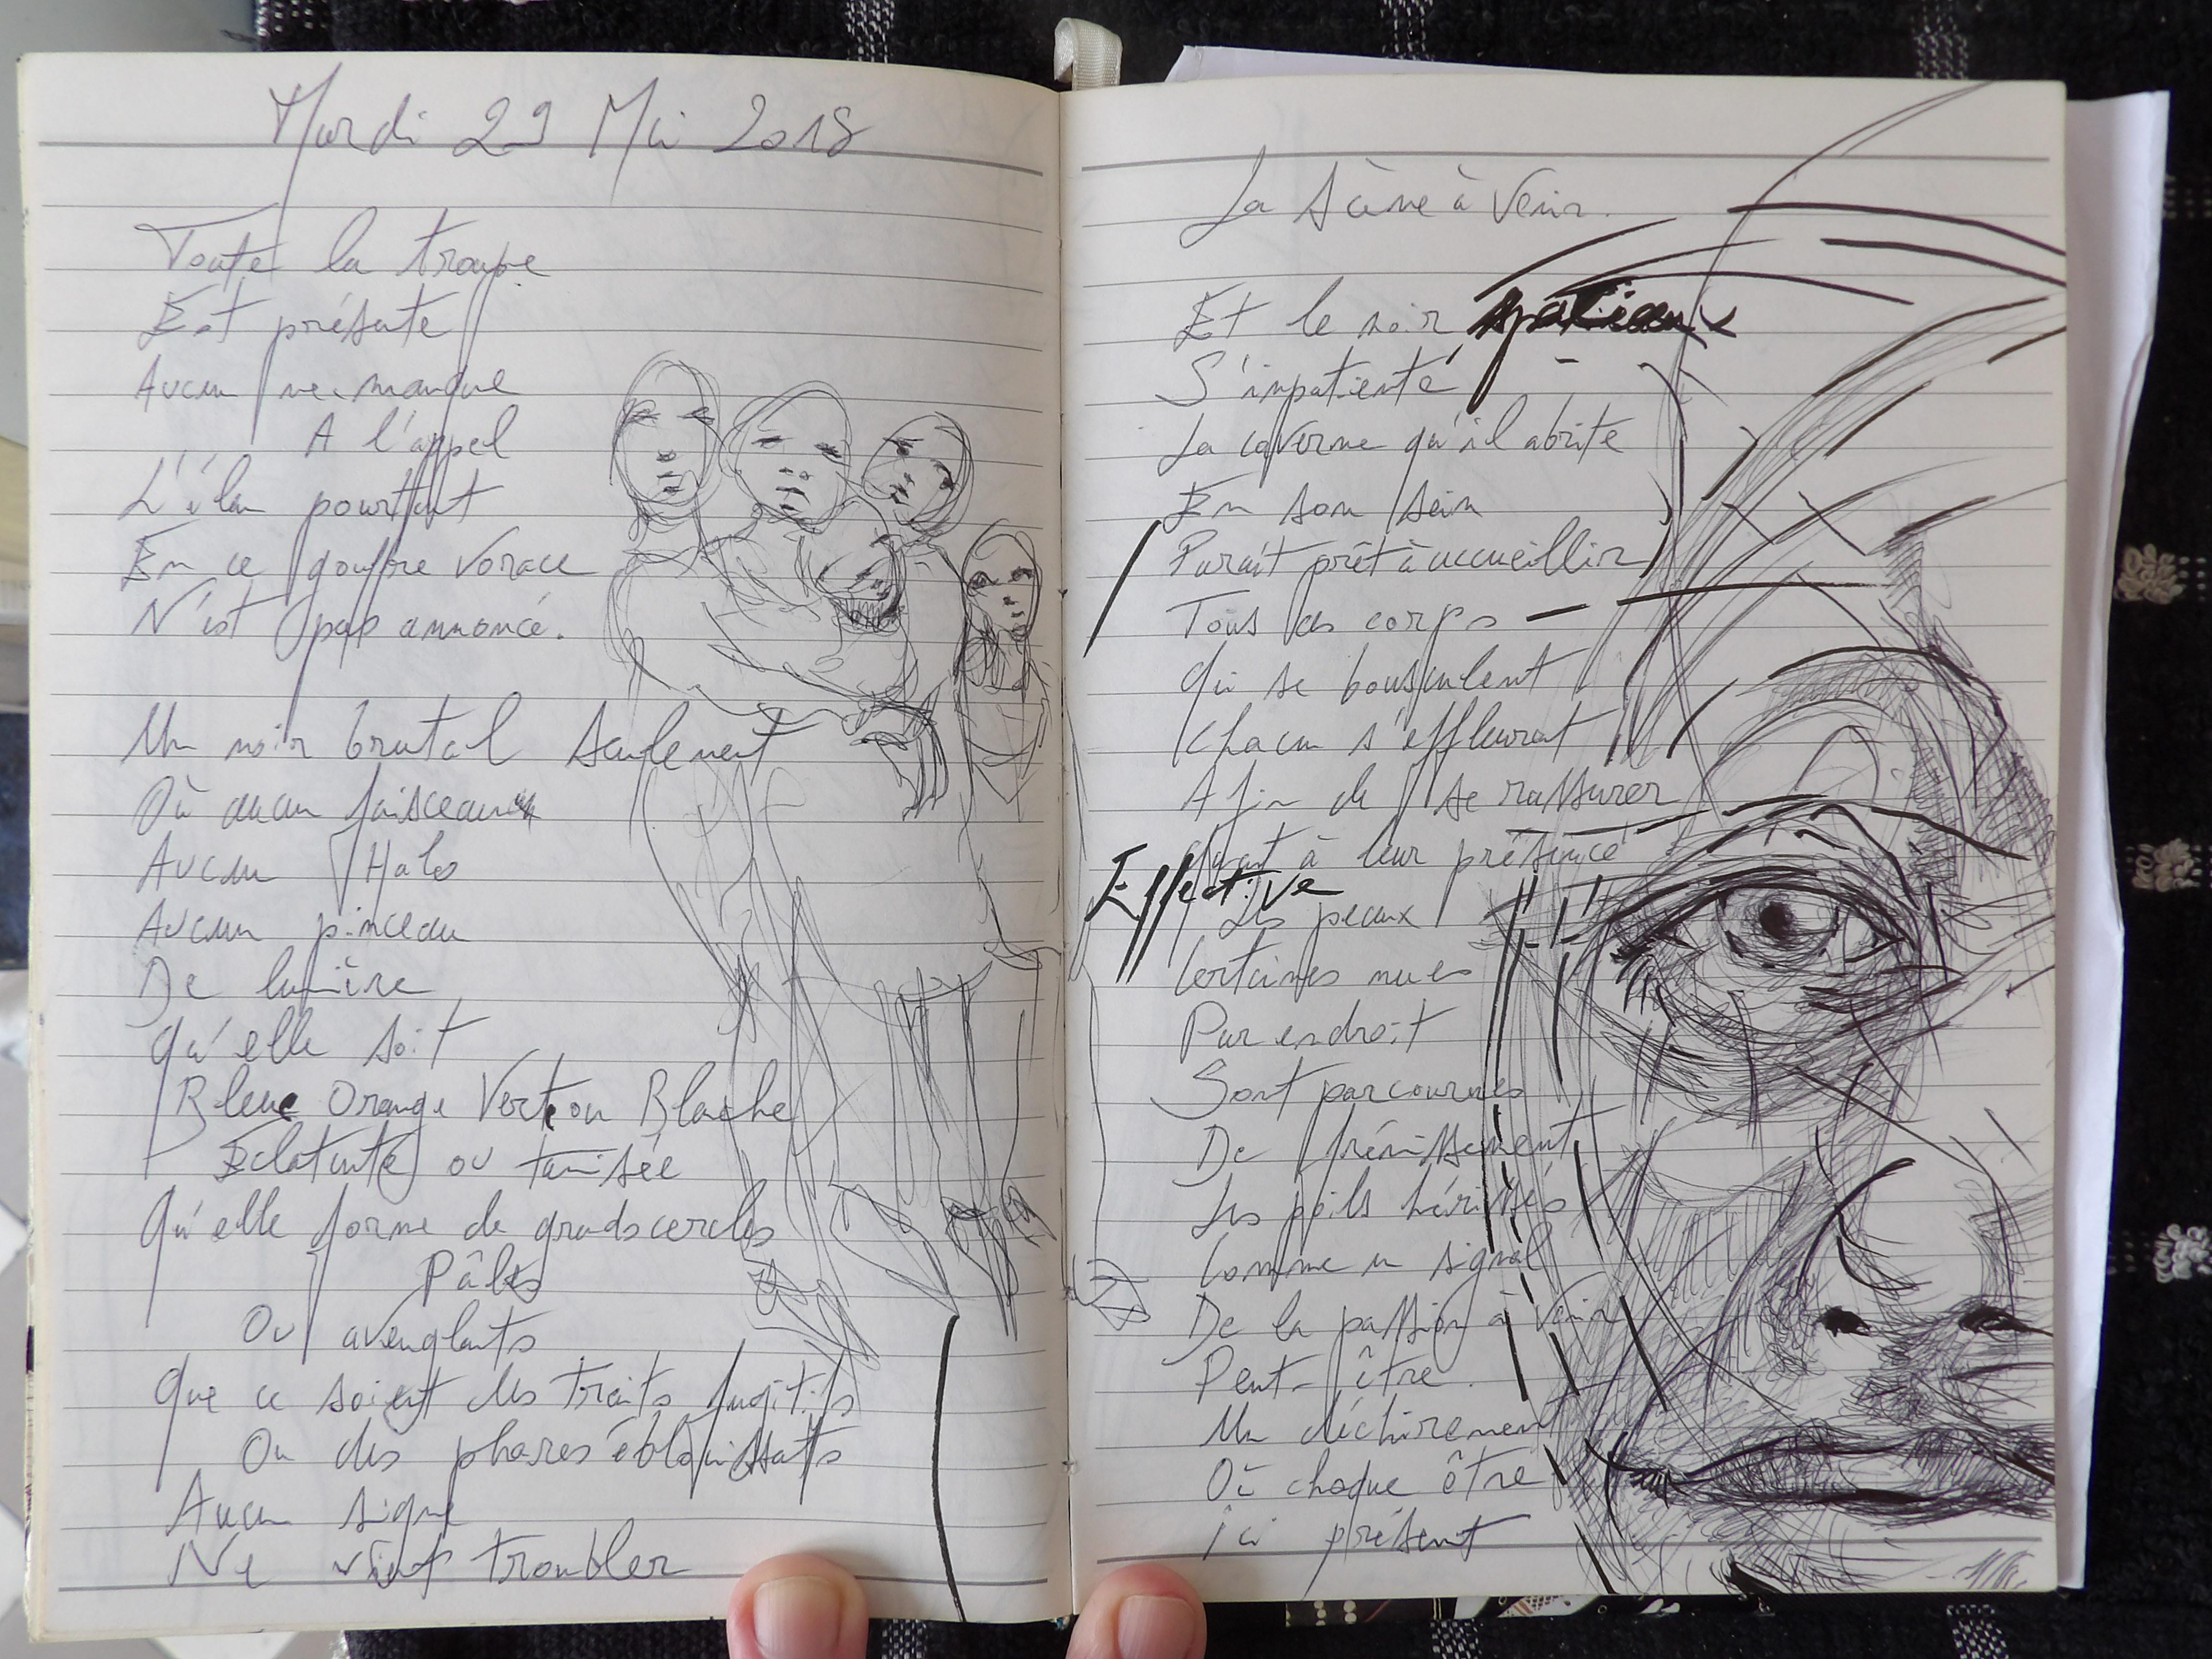 Mardi 29 Mai 2018
Toute la troupe
Est présente
Aucun ne manque
A l'appel
L'élan pourtant
En ce gouffre vorace
N'est pas annoncé.
Un noir brutal seulement
Où aucun faisceau
Aucun Halo
Aucun pinceau
De lumière
Qu'elle soit
Bleue Orange Verte ou Blanche
Eclatante ou tamisée
Qu'elle forme de grands cercles
Pâles
Ou aveuglants
Que ce soient des traits fugitifs
Ou des phares éblouissants
Aucun signe
Ne vient troubler
La scène à venir.
Et le noir spacieux
S'impatiente
La caverne qu'il abrite
En son sein
Parait prêt à accueillir
Tous ces corps
Qui se bousculent
Chacun s'effleurant
Afin de se rassurer
Quant à leur présence
Effective
Les peaux
Certaines nues
Par endroit
Sont parcourues
De frémissement
Les poils hérissés
Comme un signal
De la passion à venir
Peut-être.
Un déchirement
Où chaque être
ici présent